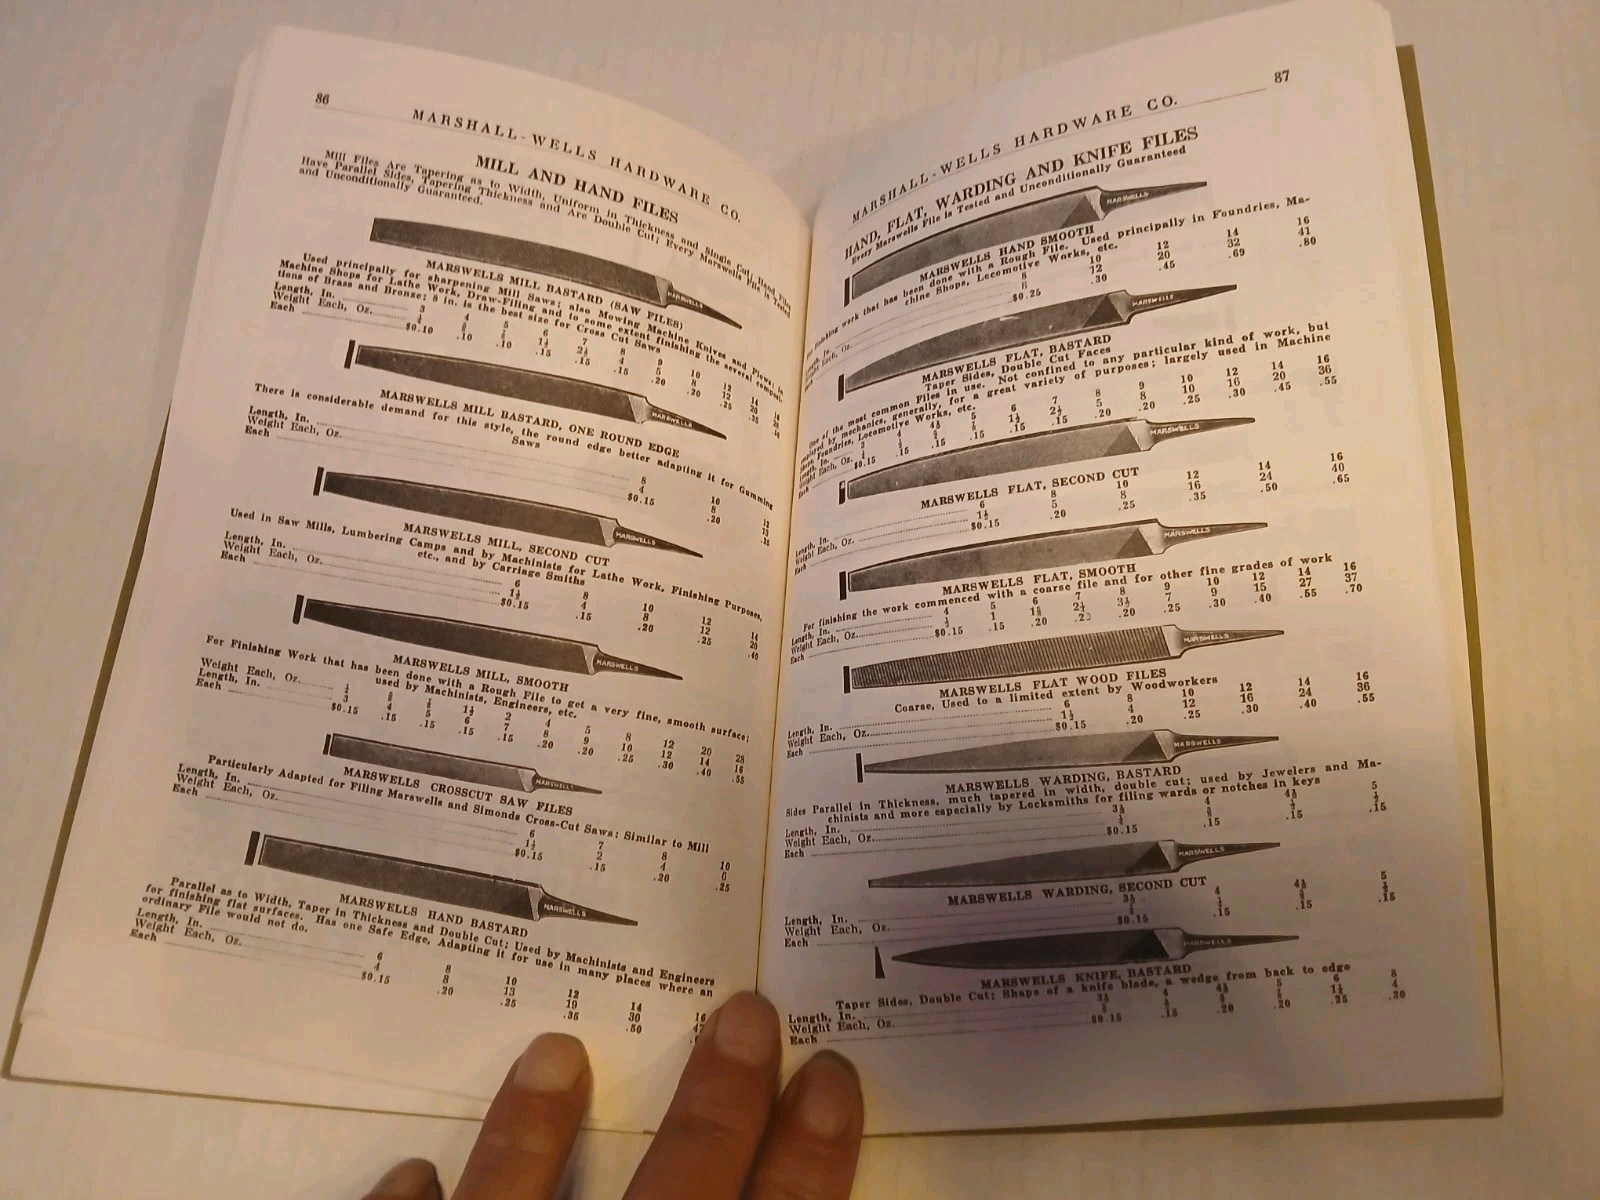 86
MARSHALL-WELLS HARDWARE CO.
MILL AND HAND FILES
Mill Files Are Tapering as to Width, Uniform in Thickness and Single Cut; Hand Files
Have Parallel Sides, Tapering Thickness and Are Double Cut; Every Marswells File is Tested
and Unconditionally Guaranteed.
MARSWELLS
MARSWELLS MILL BASTARD (SAW FILES)
Used principally for sharpening Mill Saws; also Mowing Machine Knives and Plows; in
Machine Shops for Lathe Work, Draw-Filing and to some extent finishing the several composi-
tions of Brass and Bronze; 8 in. is the best size for Cross Cut Saws
Length, In. 3 4 5 6 7 8 9 10 12 14 16
Weight Each, Oz.
Each $0.10 .10 .10 .15 .15 .15 .20 .20 .25 .35
MARSWELLS
MARSWELLS MILL BASTARD, ONE ROUND EDGE
There is considerable demand for this style, the round edge better adapting it for Gumming
Saws
Length, In. 8 10 12
Weight Each, Oz. 4 8
Each $0.15 .20
MARSWELLS
MARSWELLS MILL, SECOND CUT
Used in Saw Mills, Lumbering Camps and by Machinists for Lathe Work, Finishing Purposes,
etc., and by Carriage Smiths
Length, In. 6 8 10 12 14
Weight Each, Oz. 1½ 4 8 12 20
Each $0.15 .15 .20 .25 .40
MARSWELLS
MARSWELLS MILL, SMOOTH
For Finishing Work that has been done with a Rough File to get a very fine, smooth surface;
used by Machinists, Engineers, etc.
Weight Each, Oz. 1½ 2 4 5 8 12 20 28
Length, In. 3 4 5 6 7 8 9 10 12 14 16
Each $0.15 .15 .15 .15 .15 .20 .20 .25 .30 .40 .55
MARSWELLS
MARSWELLS CROSSCUT SAW FILES
Particularly Adapted for Filing Marswells and Simonds Cross-Cut Saws; Similar to Mill
Length, In. 6 7 8 10
Weight Each, Oz. 1½ 2 4
Each $0.15 .15 .20 .25
MARSWELLS
MARSWELLS HAND BASTARD
Parallel as to Width, Taper in Thickness and Double Cut; Used by Machinists and Engineers
for finishing flat surfaces. Has one Safe Edge, Adapting it for use in many places where an
ordinary File would not do.
Length, In. 6 8 10 12 14 16
Weight Each, Oz. 4 8 13 19 30
Each $0.15 .20 .25 .35 .50
87
MARSHALL-WELLS HARDWARE CO.
HAND, FLAT, WARDING AND KNIFE FILES
Every Marswells File is Tested and Unconditionally Guaranteed
MARSWELLS
MARSWELLS HAND SMOOTH
For finishing work that has been done with a Rough File. Used principally in Foundries, Ma-
chine Shops, Locomotive Works, etc.
Length, In. 8 10 12 14 16
Weight Each, Oz. 8 12 20 32 41
Each $0.25 .30 .45 .69 .80
MARSWELLS
MARSWELLS FLAT, BASTARD
Taper Sides, Double Cut Faces
One of the most common Files in use. Not confined to any particular kind of work, but
employed by mechanics, generally, for a great variety of purposes; largely used in Machine
Shops, Foundries, Locomotive Works, etc.
Length, In. 3 4 4½ 5 6 7 8 9 10 12 14 16
Weight Each, Oz. 1½ 2½ 5 8 10 16 20 36
Each $0.15 .15 .15 .15 .15 .15 .20 .20 .25 .30 .45 .55
MARSWELLS
MARSWELLS FLAT, SECOND CUT
Length, In. 6 8 10 12 14 16
Weight Each, Oz. 1½ 5 8 16 24 40
Each $0.15 .20 .25 .35 .50 .65
MARSWELLS
MARSWELLS FLAT, SMOOTH
For finishing the work commenced with a coarse file and for other fine grades of work
Length, In. 4 5 6 7 8 9 10 12 14 16
Weight Each, Oz. 1 2½ 3½ 7 9 15 27 37
Each $0.15 .15 .20 .20 .20 .25 .30 .40 .55 .70
MARSWELLS
MARSWELLS FLAT WOOD FILES
Coarse, Used to a limited extent by Woodworkers
Length, In. 6 8 10 12 14 16
Weight Each, Oz. 1½ 4 12 16 24 36
Each $0.15 .20 .25 .30 .40 .55
MARSWELLS
MARSWELLS WARDING, BASTARD
Sides Parallel in Thickness, much tapered in width, double cut; used by Jewelers and Ma-
chinists and more especially by Locksmiths for filing wards or notches in keys
Length, In. 3½ 4 4½ 5
Weight Each, Oz.
Each $0.15 .15 .15 .15
MARSWELLS
MARSWELLS WARDING, SECOND CUT
Length, In. 3½ 4 4½ 5
Weight Each, Oz.
Each $0.15 .15 .15 .15
MARSWELLS
MARSWELLS KNIFE, BASTARD
Taper Sides, Double Cut; Shape of a knife blade, a wedge from back to edge
Length, In. 3½ 4 4½ 5 6 8
Weight Each, Oz. 1½ 4
Each $0.15 .15 .20 .20 .25 .30